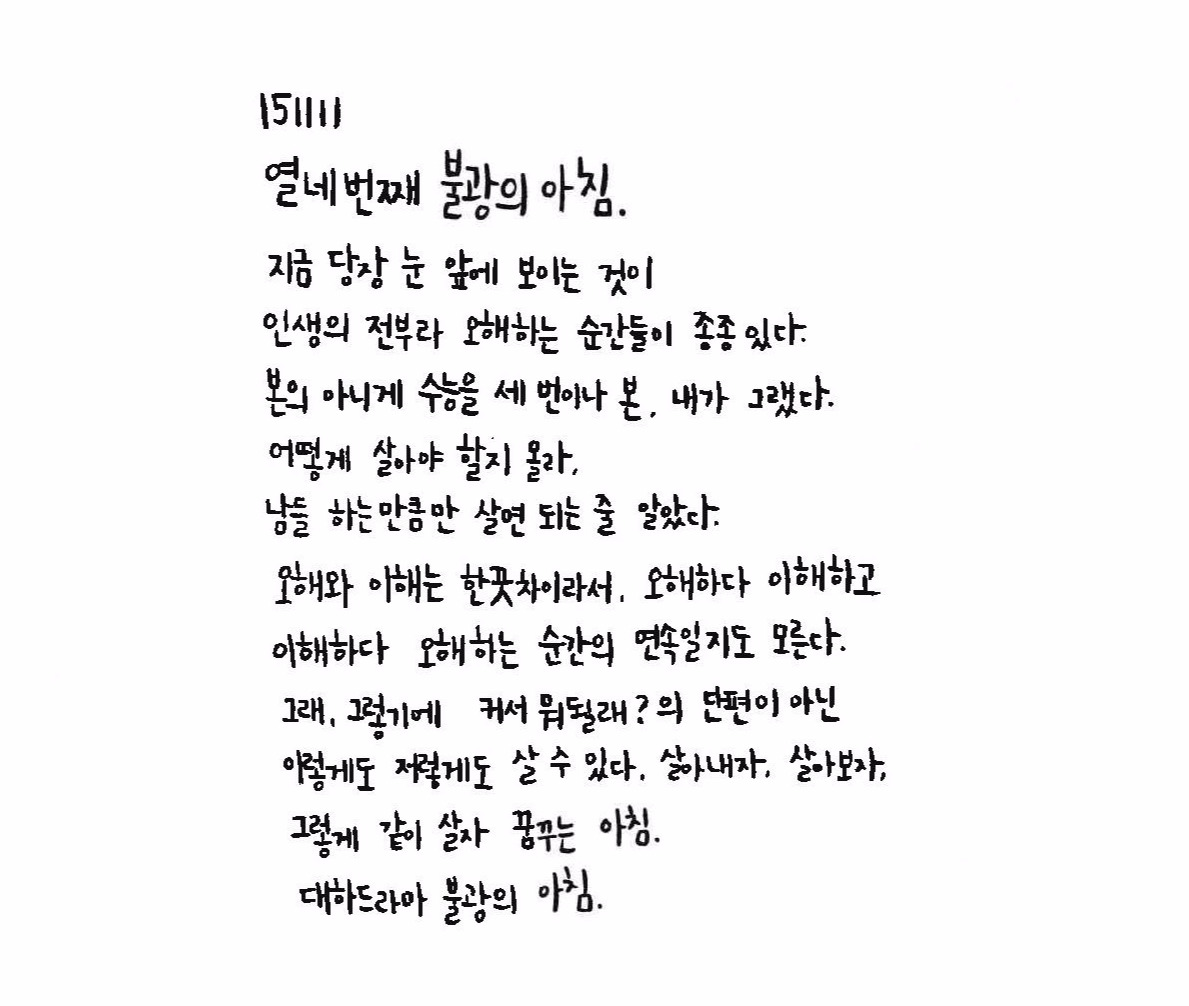 151111
열네번째 불광의 아침.
지금 당장 눈 앞에 보이는 것이
인생의 전부라 오해하는 순간들이 종종 있다.
본의 아니게 수능을 세 번이나 본, 내가 그랬다.
어떻게 살아야 할지 몰라,
남들 하는만큼만 살면 되는 줄 알았다.
오해와 이해는 한끗차이라서, 오해하다 이해하고
이해하다 오해하는 순간의 연속일지도 모른다.
그래, 그렇기에 커서 뭐될래? 의 단편이 아닌
이렇게도 저렇게도 살 수 있다, 살아내자, 살아보자,
그렇게 같이 살자 꿈꾸는 아침.
대하드라마 불광의 아침.